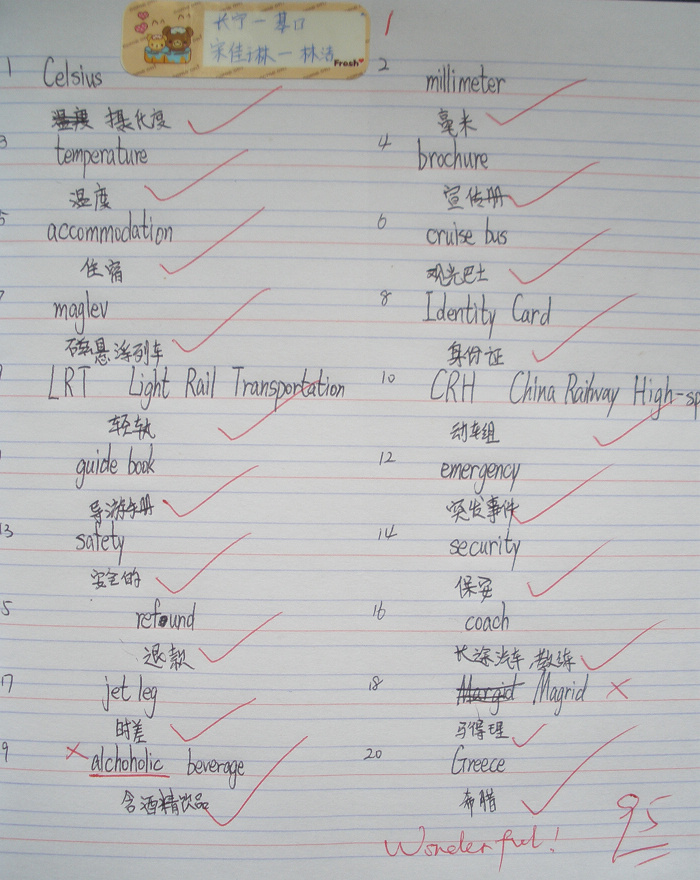 长宁一基口
宋佳琳一林洁
Fresh
1
1 Celsius
温度 摄化度
2 millimeter
毫米
3 temperature
温度
4 brochure
宣传册
5 accommodation
住宿
6 cruise bus
观光巴士
7 maglev
磁悬浮列车
8 Identity Card
身份证
9 LRT Light Rail Transportation
轻轨
10 CRH China Railway High-sp
动车组
guide book
导游手册
12 emergency
突发事件
13 safety
安全的
14 security
保安
5 refound
退款
16 coach
长途汽车 教练
17 jet leg
时差
18 Margid Magrid
马得里
9 alchoholic beverage
含酒精饮品
20 Greece
希腊
Wonderful!
95